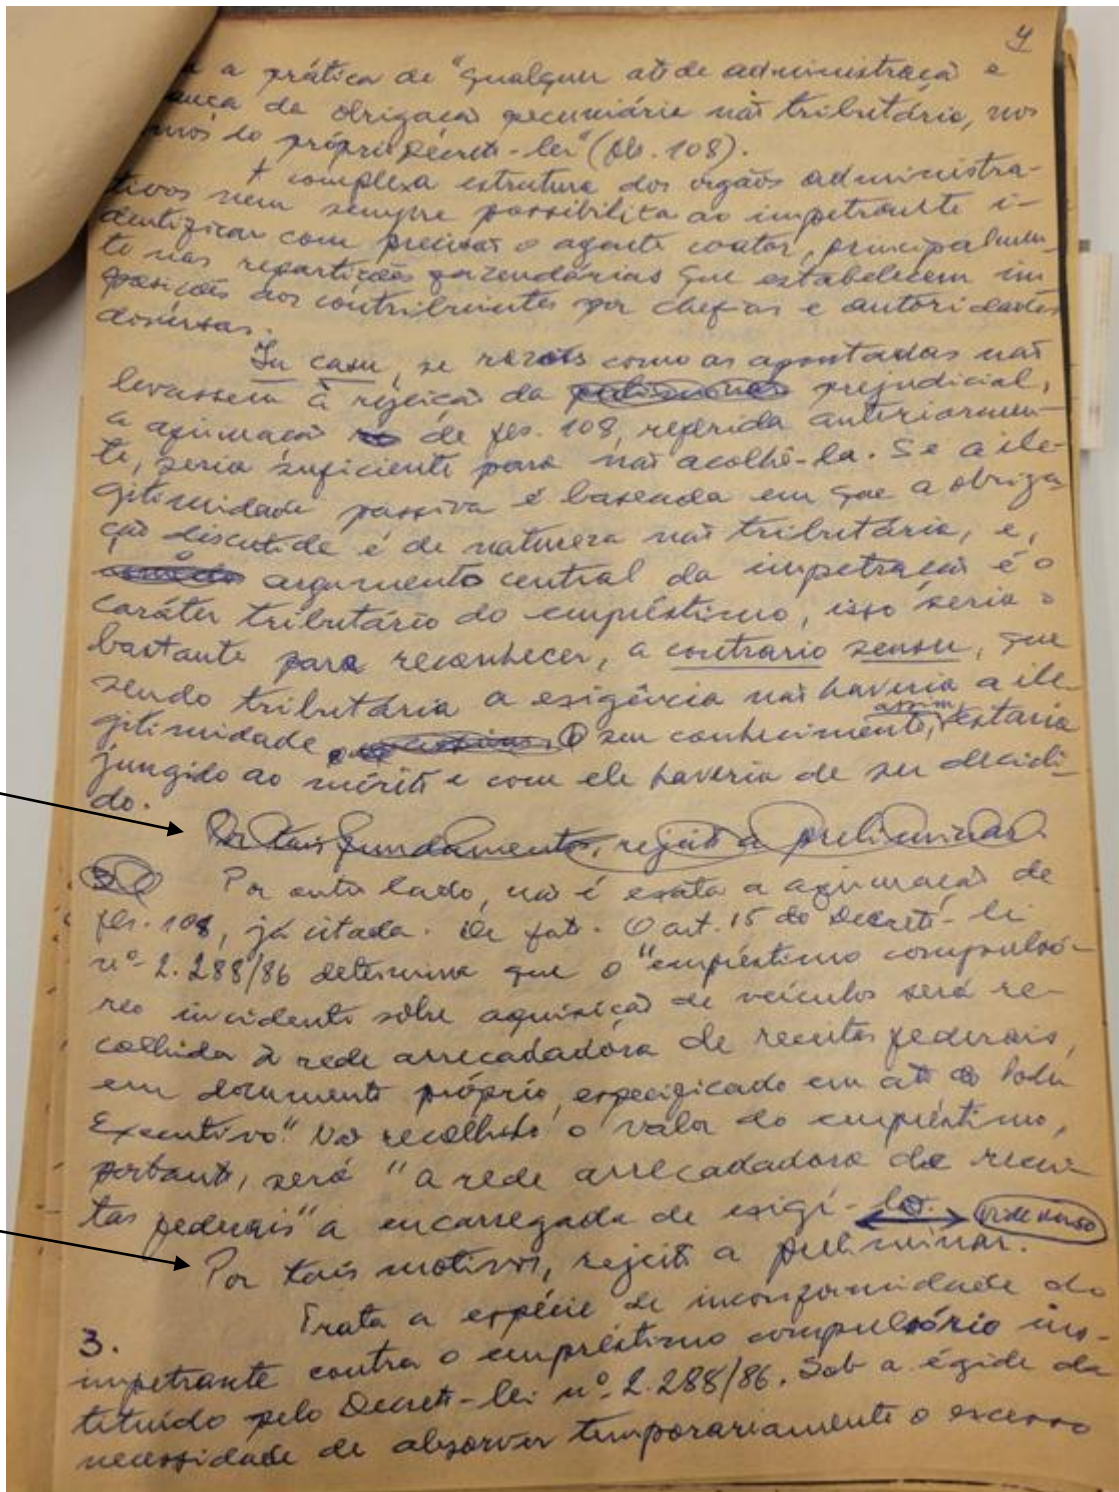 4
a prática de "qualquer ato de administração e
ança de obrigação pecuniária não tributária, nos
mos do próprio Decreto-lei" (fls. 108).
A complexa estrutura dos orgãos administra-
tivos nem sempre possibilita ao impetrante i-
dentificar com precisão o agente coator, principalmen-
te nas repartições fazendárias que estabelecem im
posições aos contribuintes por chefias e autoridades
diversas.
In casu, se razões como as apontadas não
levassem à rejeição da prejudicial,
a afirmação de fls. 108, referida anteriormen-
te, seria suficiente para não acolhê-la. Se a ile-
gitimidade passiva é baseada em que a obriga
ção discutida é de natureza não tributária, e,
o argumento central da impetração é o
caráter tributário do empréstimo, isso seria o
bastante para reconhecer, a contrario sensu, que
sendo tributária a exigência não haveria a ile-
gitimidade. O seu conhecimento, assim, estaria
jungido ao mérito e com ele haveria de ser decidi-
do.
Por tais fundamentos, rejeito a preliminar.
Por outo lado, não é exata a afirmação de
fls. 108, já citada. De fato. O art. 15 do Decreto-lei
nº 2.288/86 determina que o "empréstimo compulsó-
rio incidente sôbre aquisição de veículos será re-
colhido à rede arrecadadora de receitas federais,
em documento próprio, especificado em ato do Poder
Executivo." No recolhido o valor do empréstimo,
portanto, será "a rede arrecadadora de recei-
tas federais" a encarregada de exigí-lo. vide verso
Por tais motivos, rejeito a preliminar.
3. Trata a espécie de inconformidade do
impetrante contra o empréstimo compulsório ins-
tituído pelo Decreto-lei nº 2.288/86. Sob a égide da
necessidade de absorver temporariamente o excesso